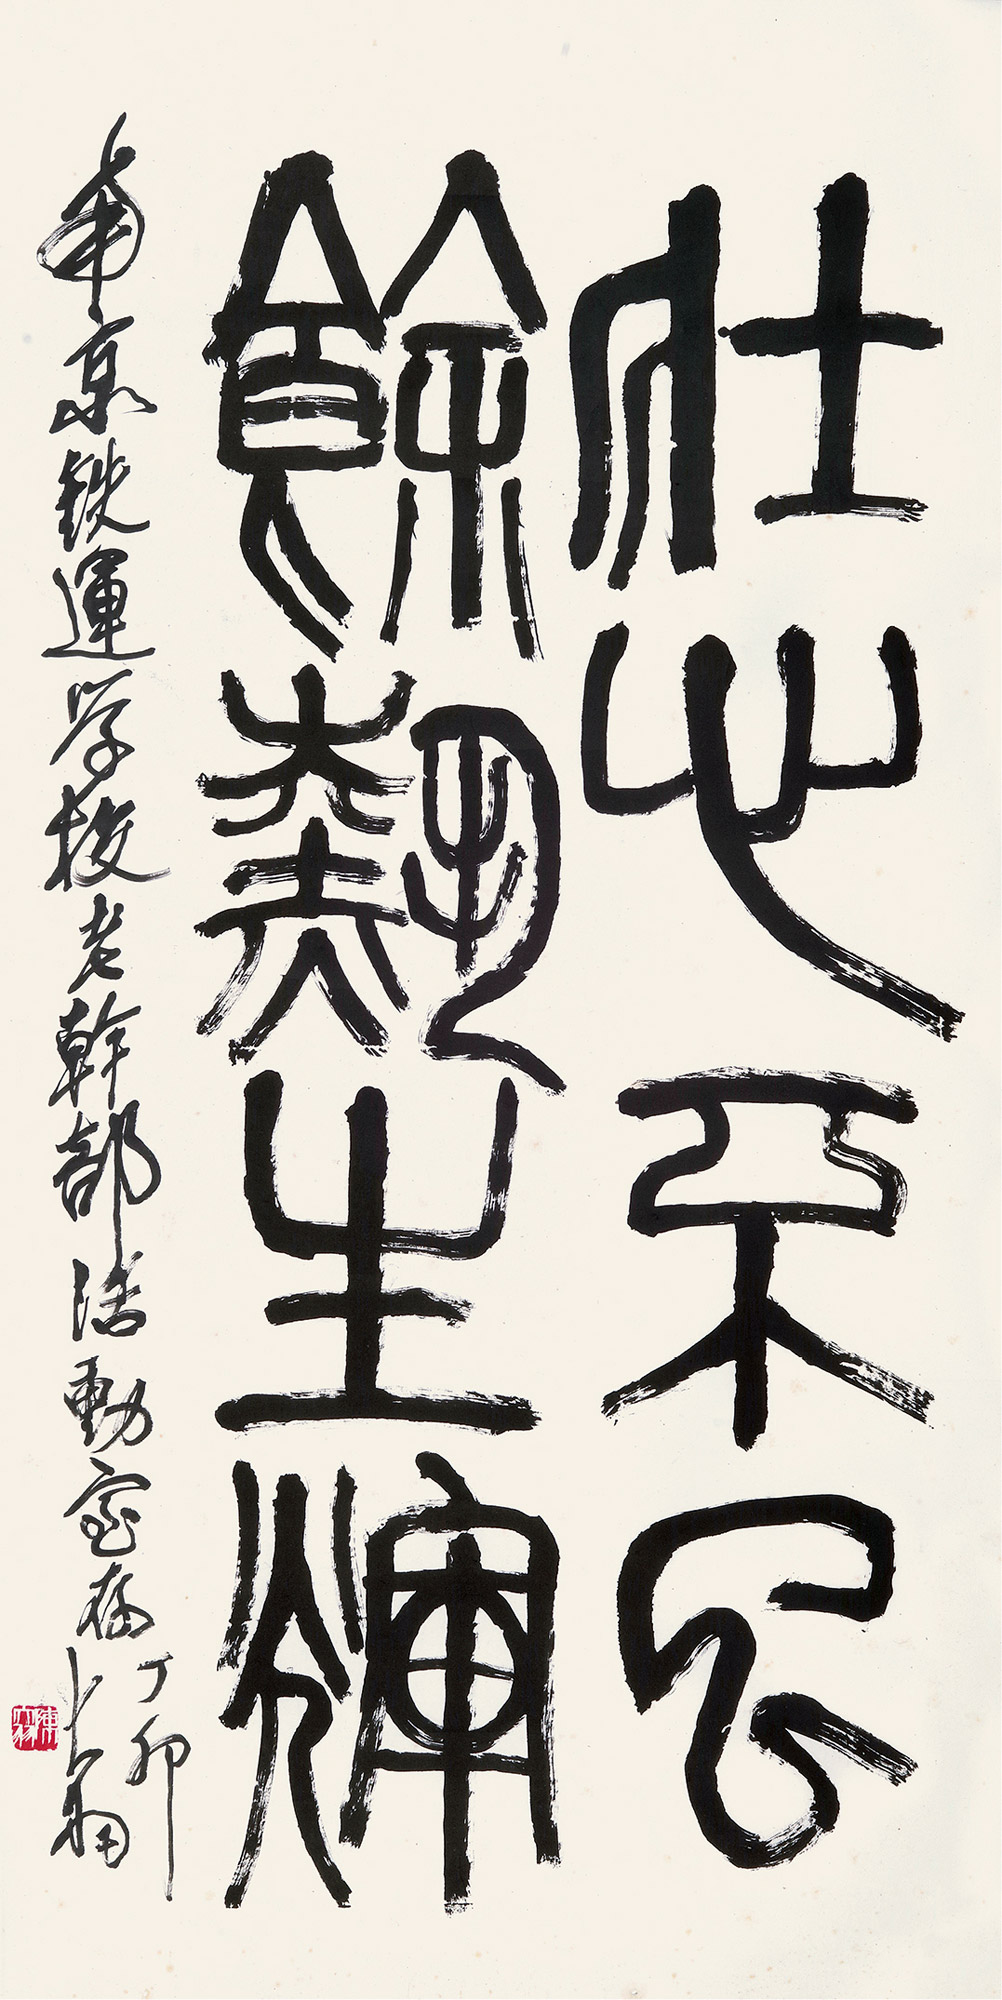 壯心不已
餘熱生輝
南京鉄運学校老幹部活動室存
丁卯
大羽